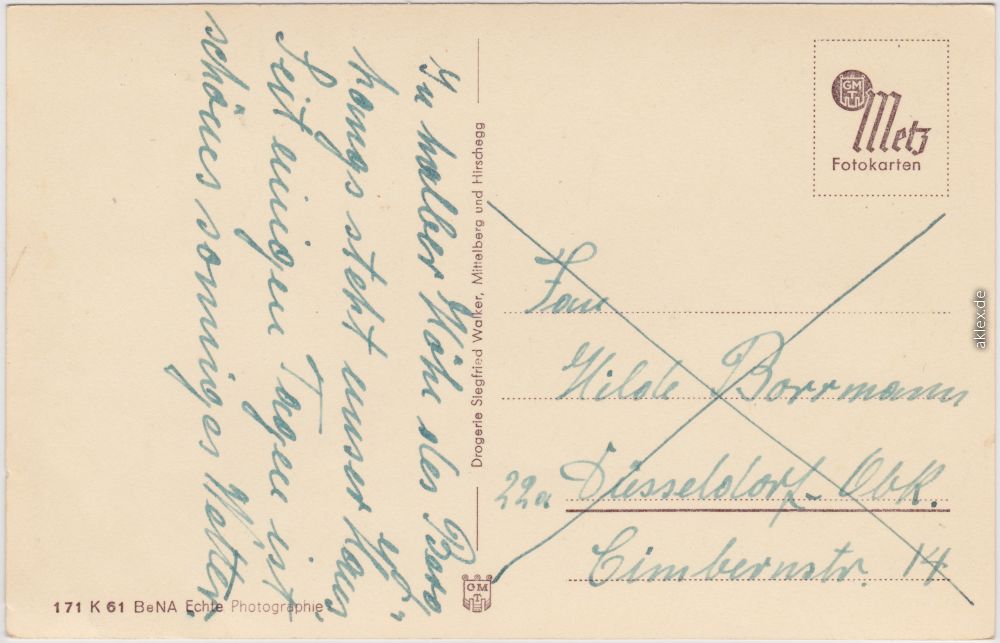 In halber Höhe des Berg
hangs steht unser Haus
Seit einigen Tagen ist
es
schönes sonniges Wetter.
Drogerie Siegfried Walker, Mittelberg und Hirschegg
GMT
Metz
Fotokarten
Frau
Hilde Borrmann
22a Düsseldorf-Obk.
Cimbernstr. 14
GMT
171 K 61 BeNA Echte Photographie
aklex.de